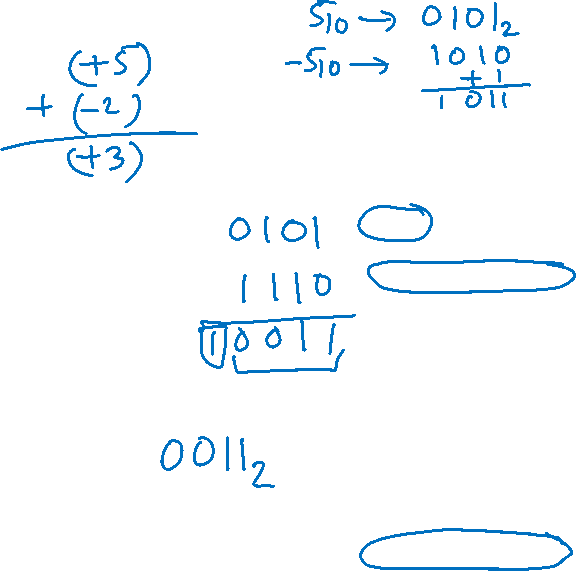 5₁₀ → 0101₂
-5₁₀ → 1010
+ 1
1 011
(+5)
+ (-2)
(+3)
0101
1110
1 0011
0011₂